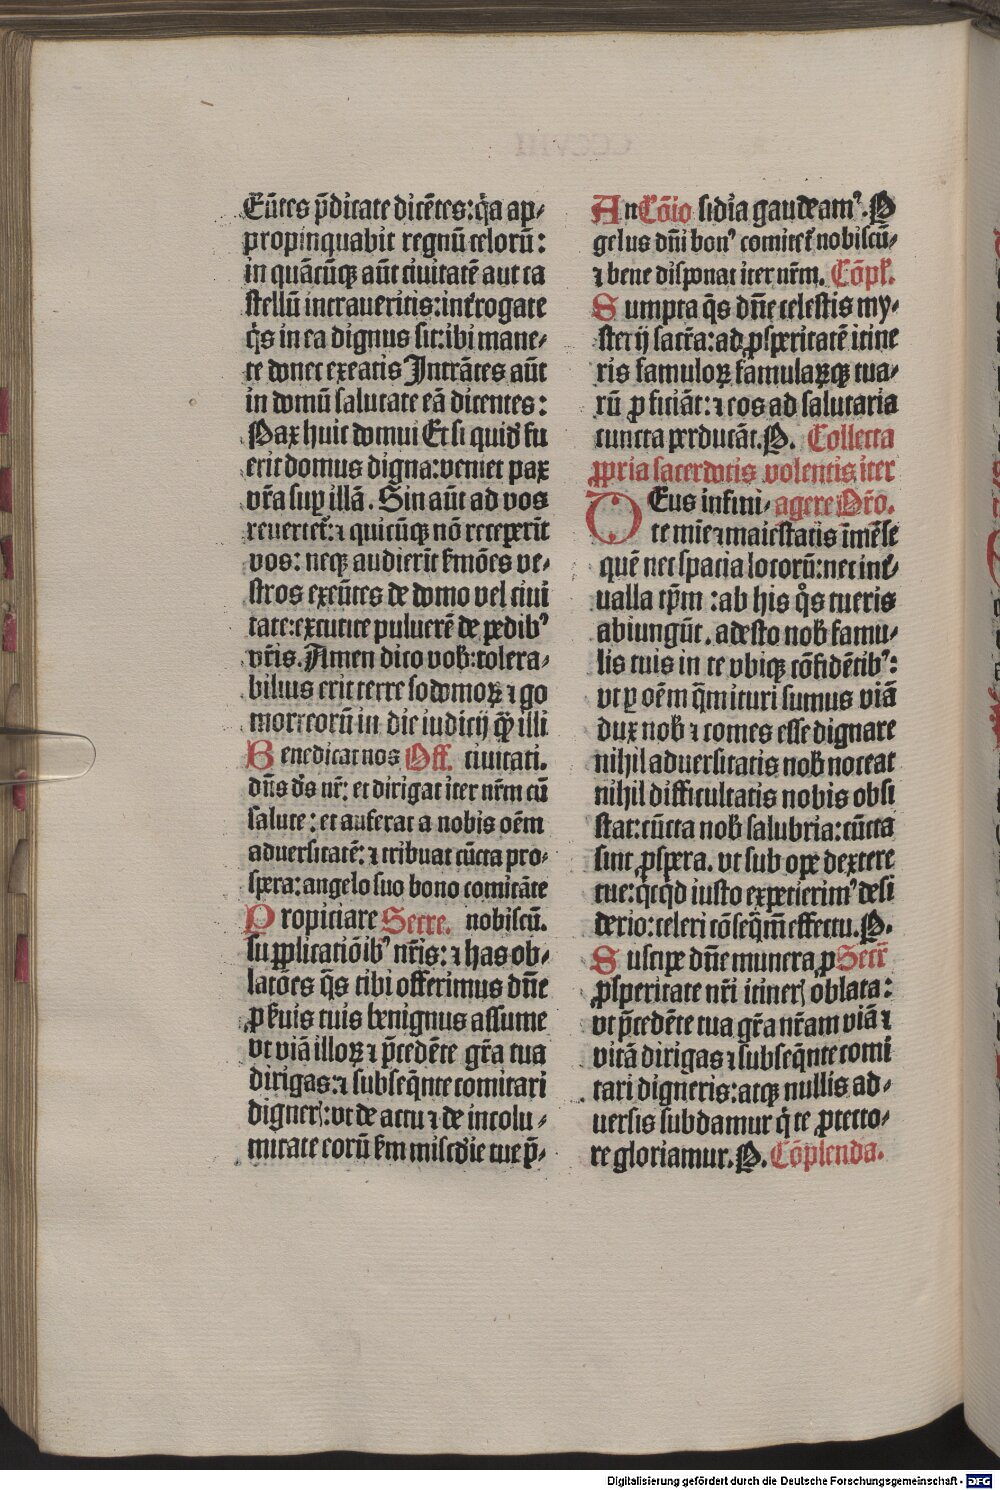 Eūtes p̄dicate dicētes: q̇a ap⸗
propinquabit regnū celorū:
in quācūqꝫ aūt ciuitatē aut ca
stellū intraueritis: int̄rogate
q̇s in ea dignus sit: ibi mane⸗
te donec exeatis Intrātes aūt
in domū salutate eā dicentes:
Pax huic domui Et si quid̄ fu
erit domus digna: veniet pax
vr̄a suꝑ illā. Sin aūt ad vos
reuertet᷑: ⁊ quicūqꝫ nō receperīt
vos: neqꝫ audierīt ẜmōes ve⸗
stros exeūtes de domo vel ciui
tate: excutite puluerē de pedibꝰ
vr̄is. Amen dico vob̄: tolera⸗
bilius erit terre sodomoꝝ ⁊ go
morreorū in die iudicij q̄ꝫ illi
Benedicat nos Off. ciuitati.
dn̄s d̄s nr̄: et dirigat iter nr̄m cū
salute: et auferat a nobis oēm
aduersitatē: ⁊ tribuat cūcta pro⸗
spera: angelo suo bono comitāte
Propiciare Secre. nobiscū.
supplicatiōibꝰ nr̄is: ⁊ has ob⸗
latōes q̄s tibi offerimus dn̄e
ꝓ ẜuis tuis benignus assume
vt viā illoꝝ ⁊ p̄cedēte gr̄a tua
dirigas: ⁊ subseq̄nte comitari
digneꝛ̄: vt de actu ⁊ de incolu⸗
mitate eorū ẜm misc̄die tue p̄⸗
An Cōio sidia gaudeamꝰ. P
gelus dn̄i bonꝰ comitet᷑ nobiscū⸗
⁊ bene disponat iter nr̄m. Cōpl̄.
Sumpta q̄s dn̄e celestis my⸗
sterij sacr̄a: ad ꝓsperitatē itine
ris famuloꝝ famulaꝝqꝫ tua⸗
rū ꝓficiāt: ⁊ eos ad salutaria
cuncta perducāt. P. Collecta
ꝓpria sacerdotis volentis iter
Deus infini⸗ agere Or̄o.
te mīe ⁊ maiestatis īmēse
quē nec spacia locorū: nec int̄⸗
ualla tp̄m: ab his q̊s tueris
abiungūt. adesto nob̄ famu⸗
lis tuis in te vbiqꝫ cōfidētibꝰ:
vt ꝑ oēm q̄m ituri sumus viā
dux nob̄ ⁊ comes esse dignare
nihil aduersitatis nob̄ noceat
nihil difficultatis nobis obsi
stat: cūcta nob̄ salubria: cūcta
sint ꝓspera. vt sub ope dextere
tue: q̇cq̇d iusto expetierimꝰ desi
derio: celeri cōseq̄m̄ effectu. P.
Suscipe dn̄e munera ꝓ Secr̄
ꝓsperitate nr̄i itineꝛ̄ oblata:
vt p̄cedēte tua gr̄a nr̄am viā ⁊
vitā dirigas ⁊ subseq̄nte comi
tari digneris: atqꝫ nullis ad⸗
uersis subdamur q̇ te ꝓtecto⸗
re gloriamur. P. Cōplenda.
Digitalisierung gefördert durch die Deutsche Forschungsgemeinschaft - DFG